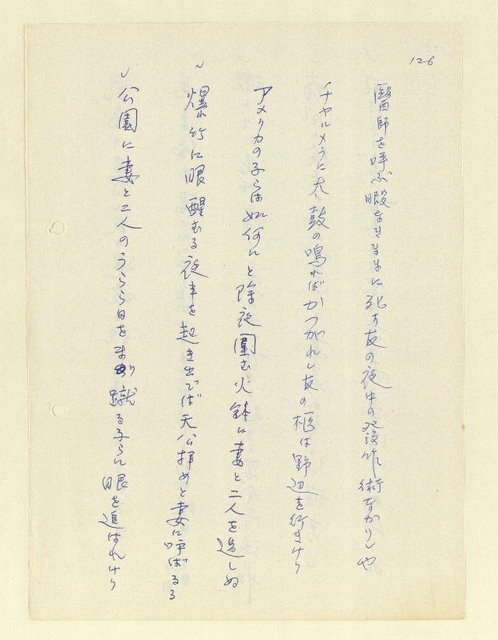 126
醫師を呼ぶ暇なきまゝに死す友の夜中の發作術なかりしや
チャルメラに太鼓の鳴ればかつがれし友の柩は野辺を行きけり
アメリカの子らは如何にと除夜圍む火鉢に妻と二人を過しぬ
爆竹に眼醒むる夜半を起き出でば天公拝めと妻に呼ばるる
公園に妻と二人のうらら日をまり蹴る子らに眼を追はれけり